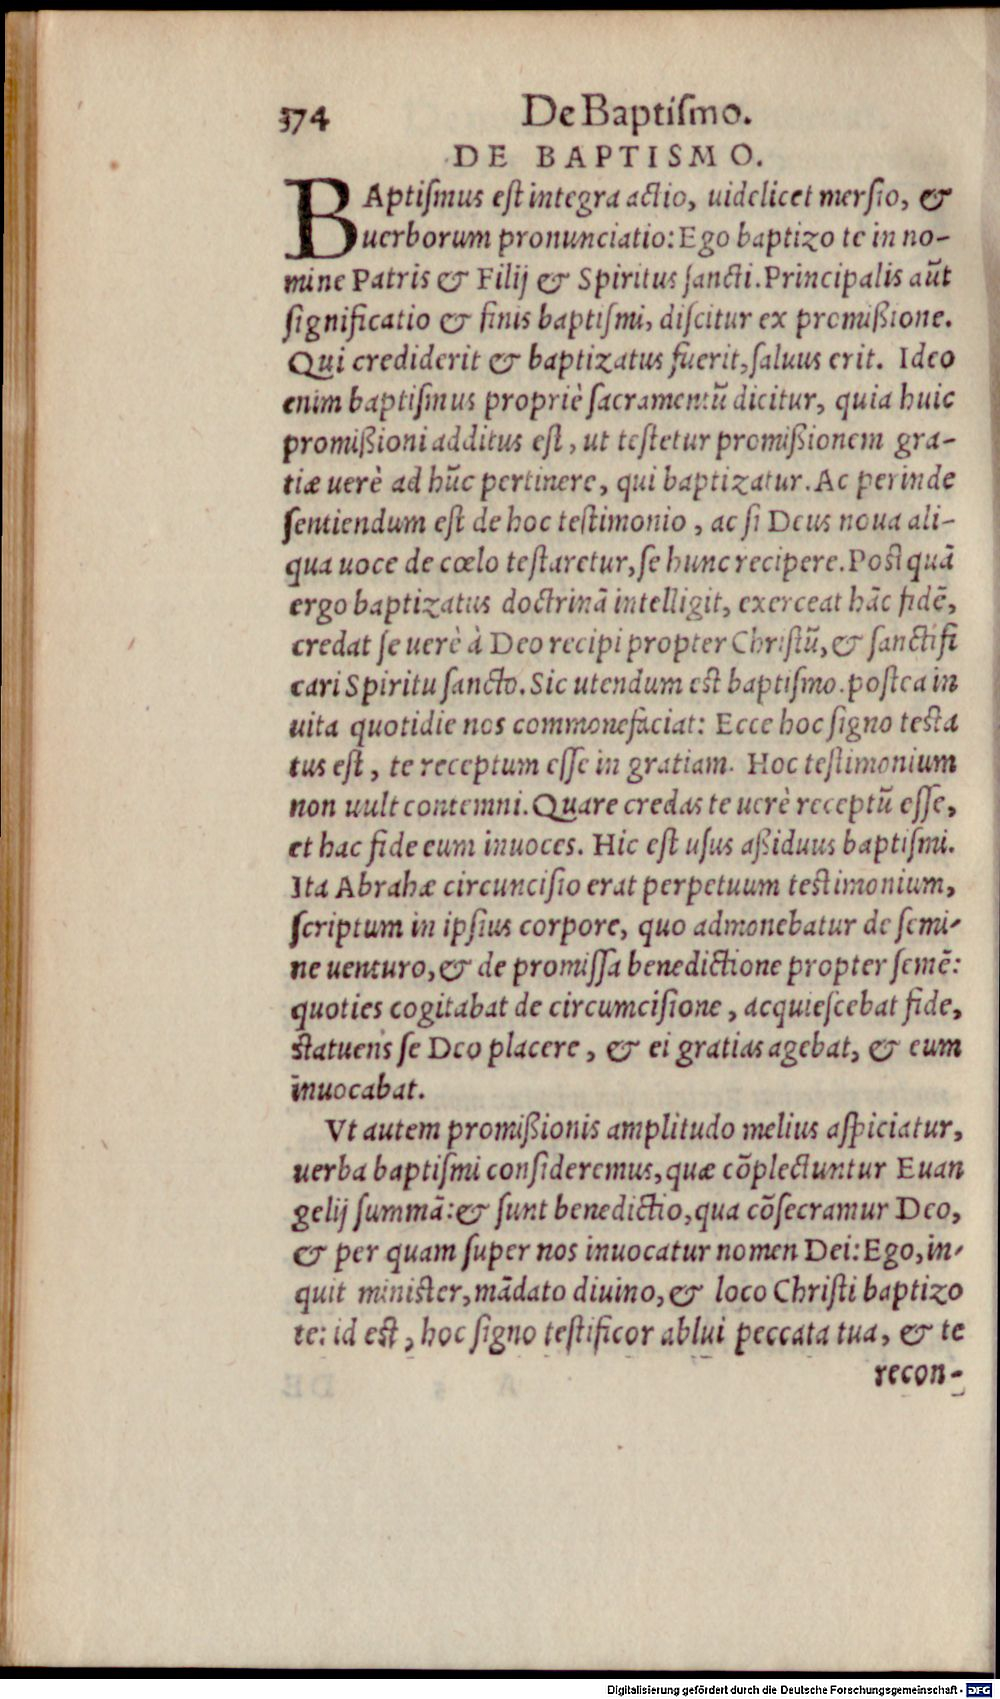 374 De Baptiſmo.
DE BAPTISMO.
BAptiſmus eſt integra actio, uidelicet merſio, &
uerborum pronunciatio: Ego baptizo te in no-
mine Patris & Filij & Spiritus ſancti. Principalis aūt
ſignificatio & finis baptiſmi, diſcitur ex promißione.
Qui crediderit & baptizatus fuerit, ſaluus erit. Ideo
enim baptiſmus propriè ſacramentū dicitur, quia huic
promißioni additus eſt, ut teſtetur promißionem gra-
tiæ uerè ad hūc pertinere, qui baptizatur. Ac perinde
ſentiendum eſt de hoc teſtimonio, ac ſi Deus noua ali-
qua uoce de cœlo teſtaretur, ſe hunc recipere. Poſt quā
ergo baptizatus doctrinā intelligit, exerceat hāc fidē,
credat ſe uerè à Deo recipi propter Chriſtū, & ſanctifi
cari Spiritu ſancto. Sic utendum eſt baptiſmo. poſtea in
uita quotidie nos commonefaciat: Ecce hoc ſigno teſta
tus eſt, te receptum eſſe in gratiam. Hoc teſtimonium
non uult contemni. Quare credas te uerè receptū eſſe,
et hac fide eum inuoces. Hic eſt uſus aßiduus baptiſmi.
Ita Abrahæ circunciſio erat perpetuum teſtimonium,
ſcriptum in ipſius corpore, quo admonebatur de ſemi-
ne uenturo, & de promiſſa benedictione propter ſemē:
quoties cogitabat de circumciſione, acquieſcebat fide,
ſtatuens ſe Deo placere, & ei gratias agebat, & eum
inuocabat.
Vt autem promißionis amplitudo melius aſpiciatur,
uerba baptiſmi conſideremus, quæ cōplectuntur Euan
gelij ſummā: & ſunt benedictio, qua cōſecramur Deo,
& per quam ſuper nos inuocatur nomen Dei: Ego, in-
quit miniſter, mādato diuino, & loco Chriſti baptizo
te: id eſt, hoc ſigno teſtificor ablui peccata tua, & te
recon-
Digitalisierung gefördert durch die Deutsche Forschungsgemeinschaft - DFG